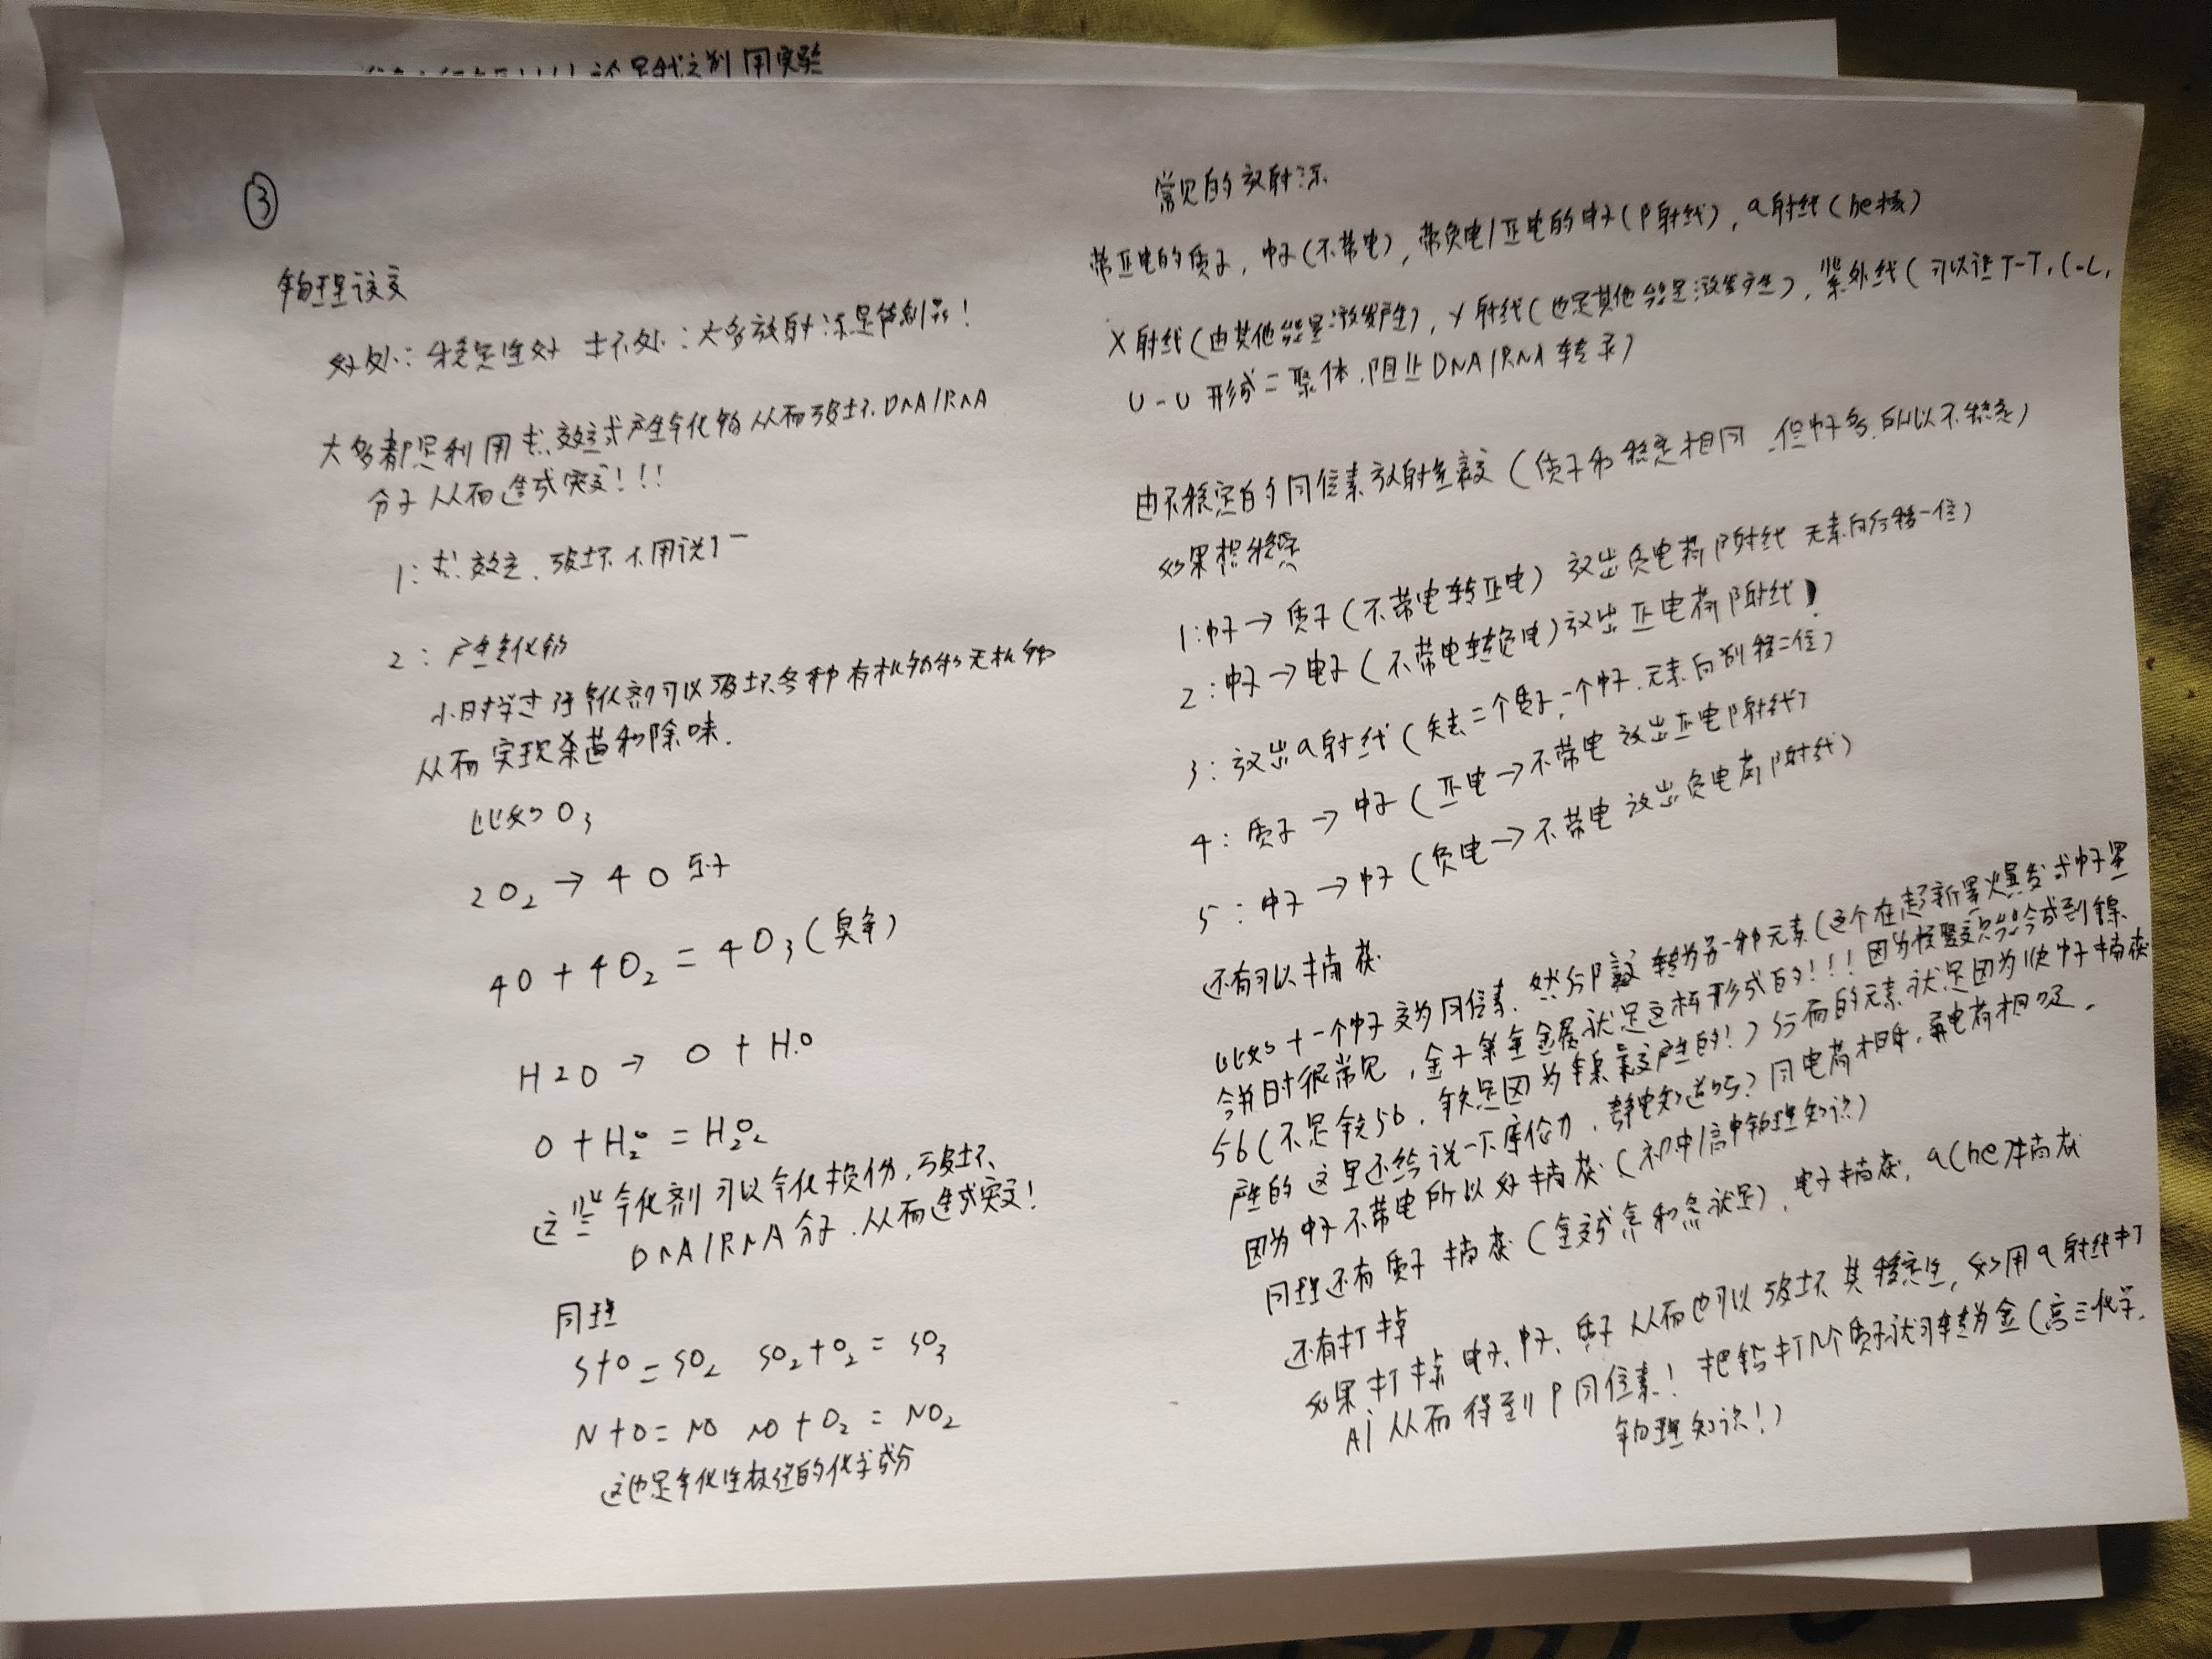 论是我之别用实验
③
物理诱变
好处：稳定性好 坏处：大多放射源是管制品！
大多都是利用热效应或产生氧化物从而破坏DNA/RNA
分子从而造成突变！！！
1：热效应、破坏不用说了一
2：产生氧化物
小时学过强氧化剂可以破坏各种有机物和无机物
从而实现杀菌和除味．
比如O₃
2O₂ → 4O 原子
4O + 4O₂ = 4O₃（臭氧）
H2O → O + H₂O
O + H₂O = H₂O₂
这些氧化剂可以氧化损伤，破坏
DNA/RNA分子．从而造成突变！
同理
S+O = SO₂ SO₂+O₂ = SO₃
N+O = NO NO + O₂ = NO₂
这也是氧化性极强的化学成分
常见的放射源
带正电的质子，中子（不带电），带负电/正电的电子（β射线），α射线（he核）
X射线（由其他能量激发产生），γ射线（也是其他能量激发产生），紫外线（可以让T-T，C-C，
U-U形成二聚体，阻止DNA/RNA转录）
由不稳定的同位素放射衰变（质子和稳定相同，但中子多，所以不稳定）
如果想稳定
1：中子→质子（不带电转正电）放出负电荷β射线 元素向后移一位）
2：中子→电子（不带电转负电）放出正电荷β射线）
3：放出α射线（失去二个质子，一个中子，元素向前移二位）
4：质子→中子（正电→不带电 放出正电β射线）
5：中子→中子（负电→不带电 放出负电荷β射线）
还有可以捕获
比如+一个中子变为同位素，然后β衰变转为另一种元素（这个在超新星爆发或中子星
合并时很常见，金子等重金属就是这样形成的！！！因为核聚变只能合成到镍
56（不是铁56，铁是因为镍衰变产生的！）后面的元素就是因为快中子捕获
产生的 这里还给说一下库伦力，静电知道吗？同电荷相斥，异电荷相吸．
因为中子不带电所以好捕获（初中/高中物理知识）
同理还有质子捕获（），电子捕获，α（he）捕获
还有打掉
如果打掉电子、中子、质子从而也可以破坏其稳定性，如用α射线打
Al从而得到P同位素！把铅打几个质子就可转为金（高三化学，
物理知识！）